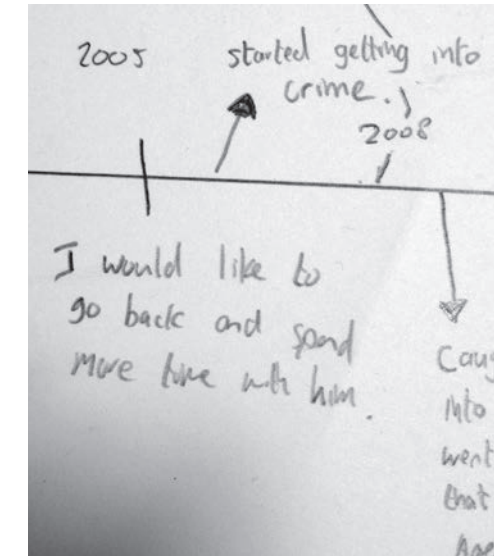 2005
started getting into
crime.
2008
I would like to
go back and spend
more time with him.
into
went
that